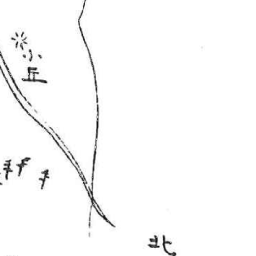 小丘
北